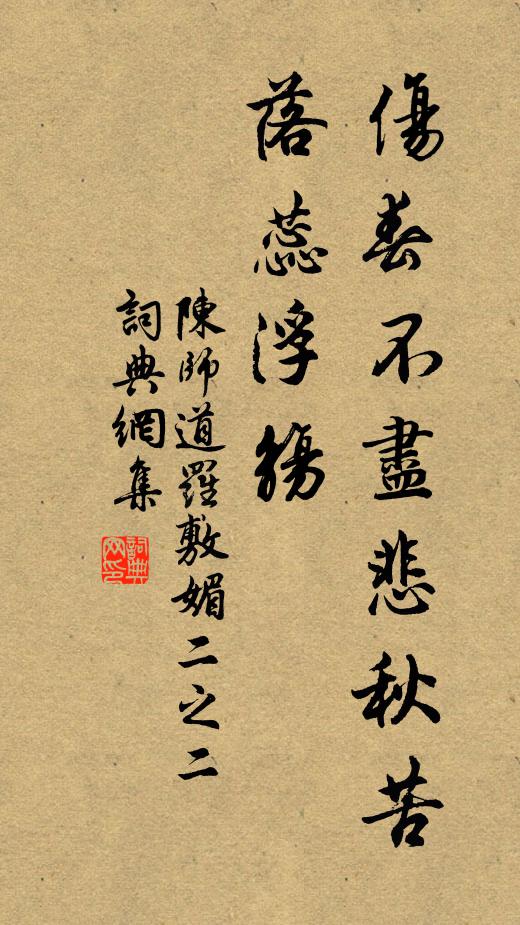 傷春不盡悲秋苦
落蕊浮觴
陳師道羅敷媚二之二
詞典網集
詞典網印